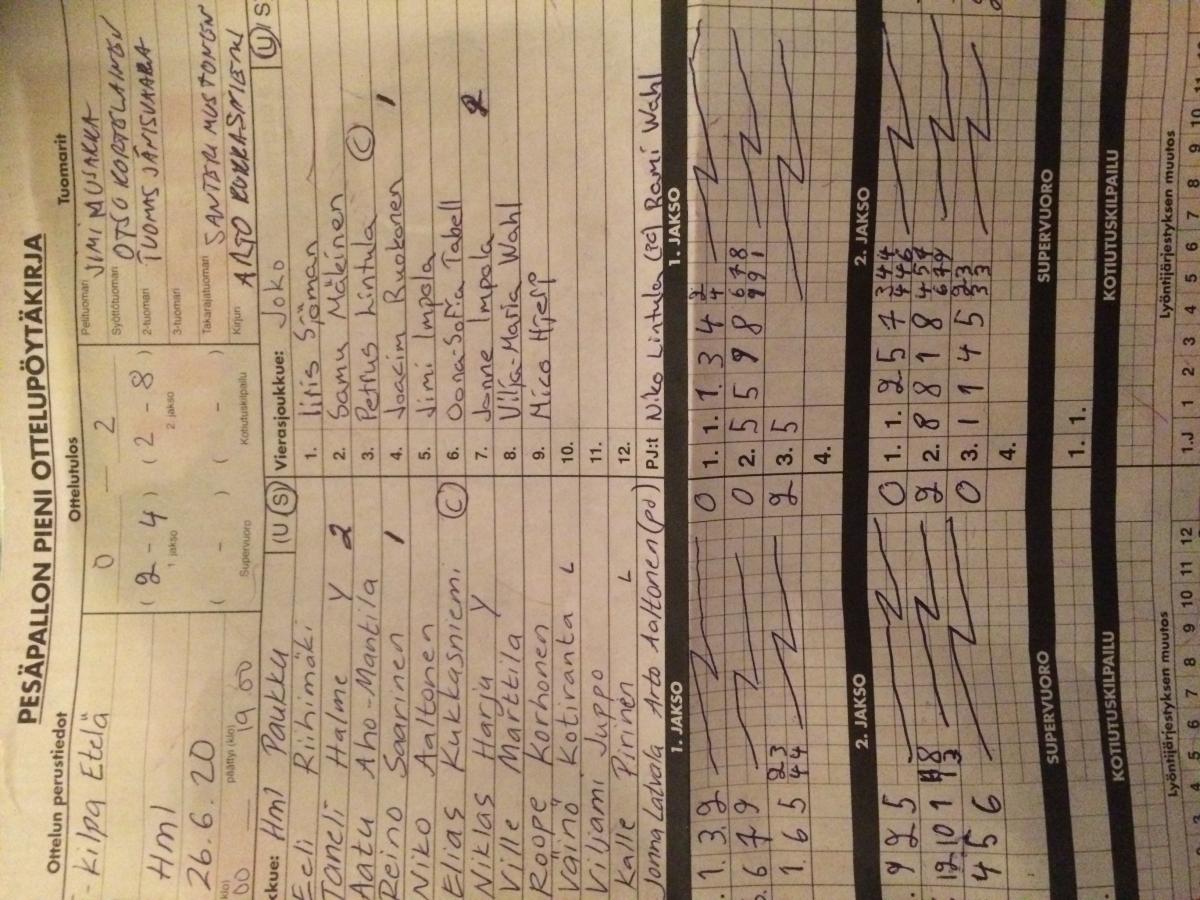 PESÄPALLON PIENI OTTELUPÖYTÄKIRJA
Ottelun perustiedot
Ottelutulos
Tuomarit
-Kilpa Etelä
Hml
26.6.20
klo)
00
päättyi (klo)
19 00
0 — 2
( 2 - 4 ) ( 2 - 8 )
1 jakso
2. jakso
( - ) ( - )
Supervuoro
Kotiutuskilpailu
Pelituomari JIMI MUSAKKA
Syöttötuomari
2-tuomari TUOMAS JÄNISVAARA
3-tuomari
Takarajatuomari SANTERI MUSTONEN
Kirjuri ARTO KUKKASNIEMI
kkue: Hml Paukku (U S)
Eeli Riihimäki
Taneli Halme Y 2
Aatu Aho-Mantila
Reino Saarinen /
Niko Aaltonen
Elias Kukkasniemi C
Niklas Harju Y
Ville Marttila
Roope Korhonen
Väinö Kotiranta L
Viljami Juppo
Kalle Pirinen L
Jonna Latvala Arto Aaltonen (pd)
Vierasjoukkue: Joko (U S
1. Iiris Sjöman
2. Samu Mäkinen
3. Petrus Lintula C
4. Joacim Ruokonen /
5. Jimi Impola
6. Oona-Sofia Tabell
7. Janne Impola 2
8. Vilja-Maria Wahl
9. Mico Hjelp
10.
11.
12.
PJ:t Niko Lintula Rami Wahl
1. JAKSO
1. 3. 2 0
6 7 9 0
1. 6 5 2 3 4 4 2
1. JAKSO
1. 1. 1. 3 4 2 4
2. 5 5 9 8 6 7 8 9 9 1
3. 5
4.
2. JAKSO
9 2 5 0
12 10 1 2
4 5 6 0
2. JAKSO
1. 1. 2 5 7 3 4 4 4 4 6
2. 8 8 1 8 4 5 7 6 7 9
3. 1 1 4 5 2 3 3 3
4.
SUPERVUORO
SUPERVUORO
1. 1.
KOTIUTUSKILPAILU
KOTIUTUSKILPAILU
Lyöntijärjestyksen muutos
Lyöntijärjestyksen muutos
3 4 5 6 7 8 9 10 11 12
1.J 1 2 3 4 5 6 7 8 9 10 11